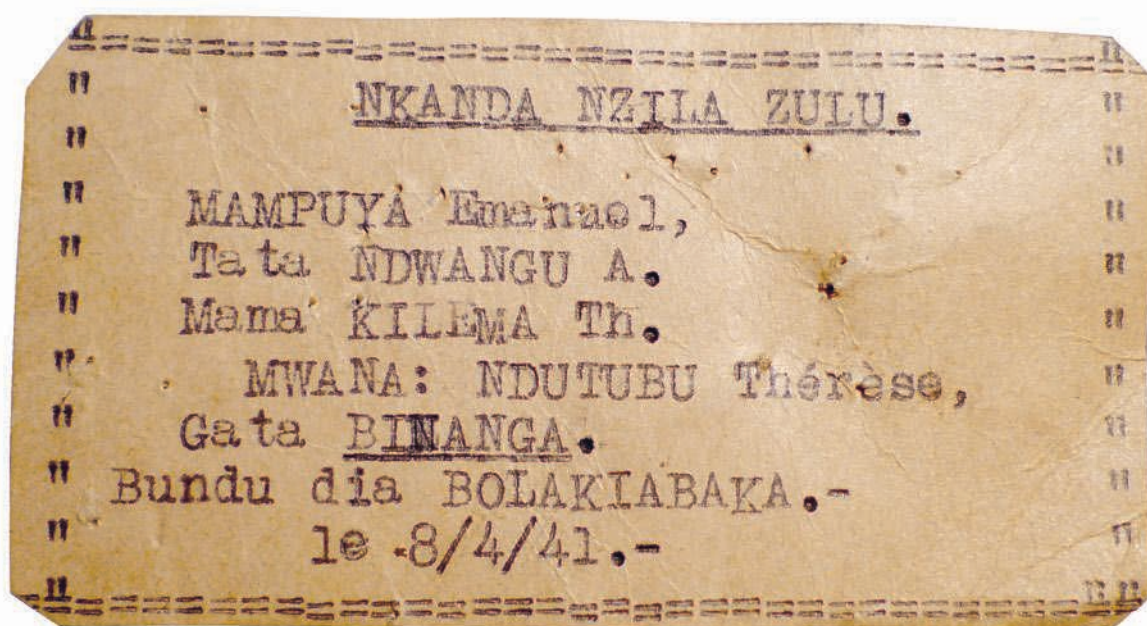 NKANDA NZILA ZULU.
MAMPUYA Emanuel,
Tata NDWANGU A.
Mama KILEMA Th.
MWANA: NDUTUBU Thérèse,
Gata BINANGA.
Bundu dia BOLAKIABAKA.-
le 8/4/41.-